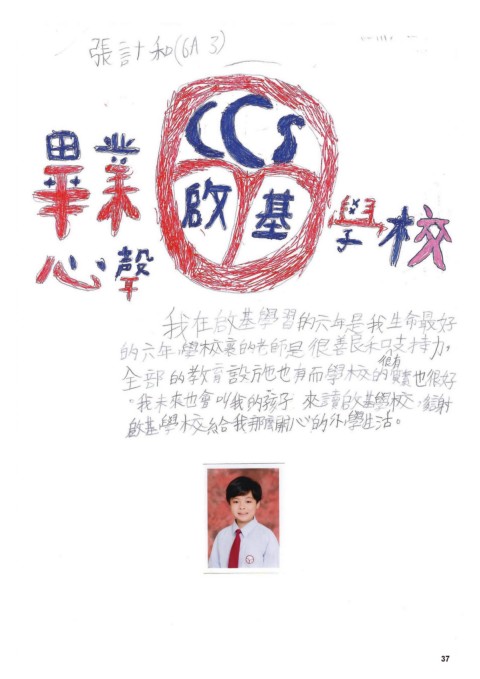 張計和(6A 3)
CCS
畢業 啟基 學校
心聲
我在啟基學習的六年是我生命最好
的六年,學校裏的老師是很善良和支持力,
全部的教育設施也有而學校的很有質素也很好
。我未來也會叫我的孩子來讀啟基學校,謝
啟基學校給我那麼開心的小學生活。
37